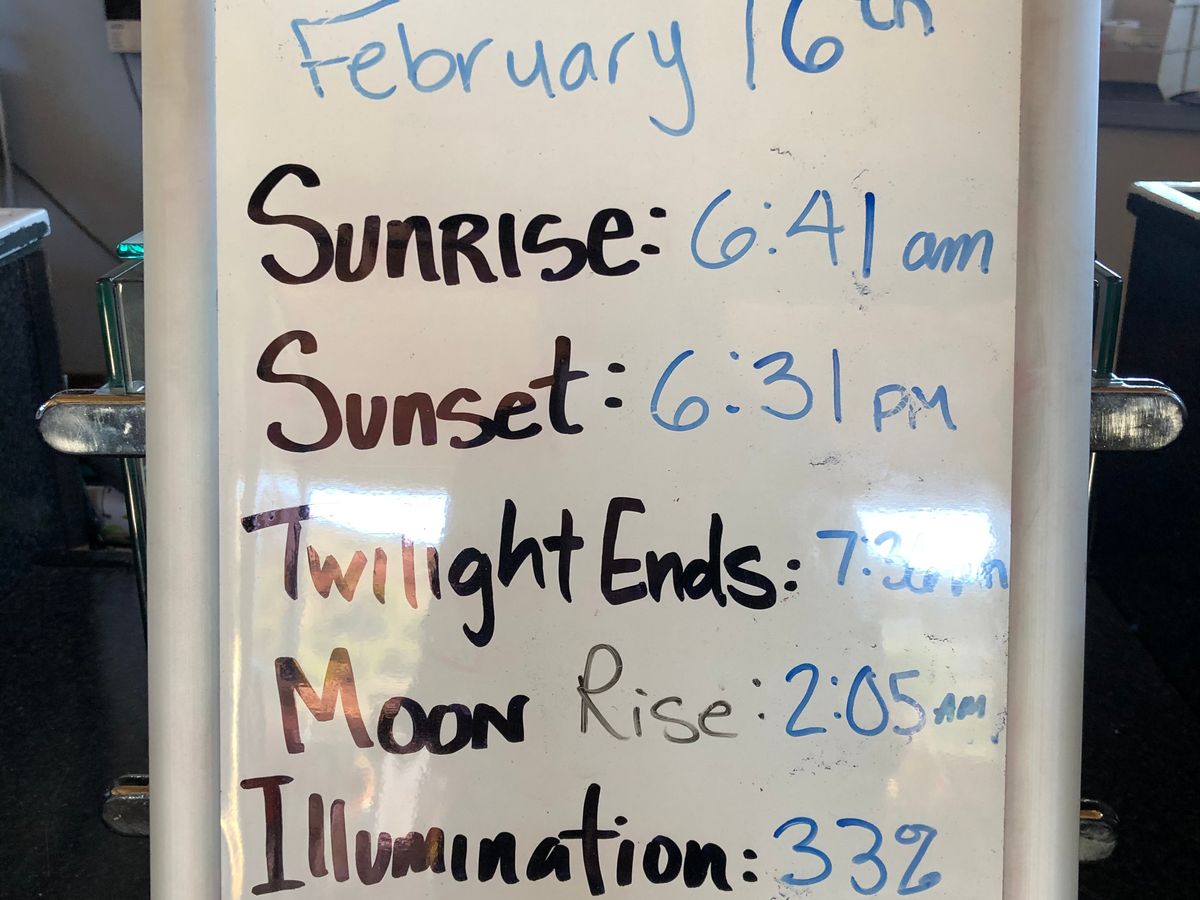 February 16th
Sunrise: 6:41 am
Sunset: 6:31 PM
Twilight Ends:
Moon Rise: 2:05 AM
Illumination: 33%